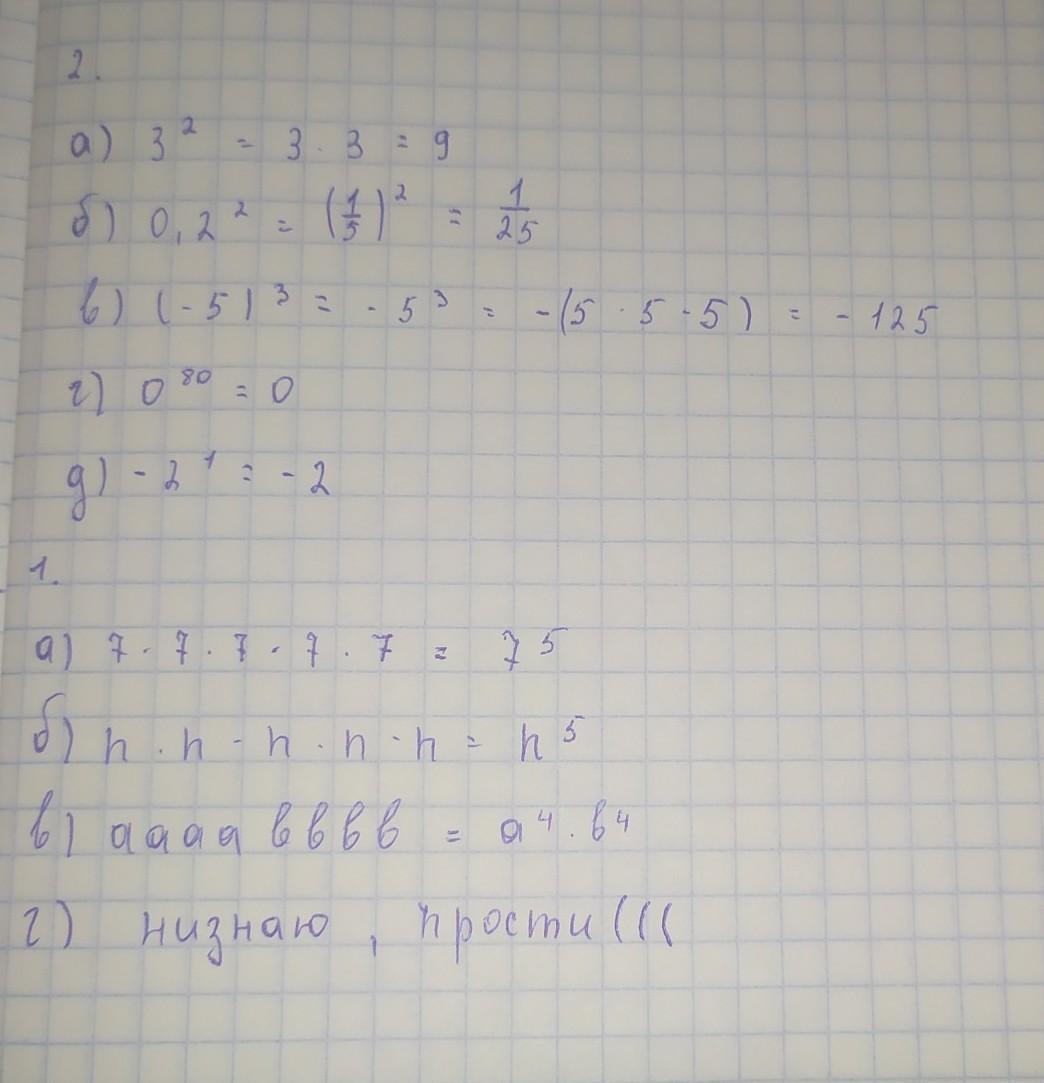 2.
а) 3² = 3 · 3 = 9
б) 0,2² = (1/5)² = 1/25
в) (-5)³ = -5³ = -(5 · 5 · 5) = -125
г) 0⁸⁰ = 0
д) -2¹ = -2
1.
а) 7 · 7 · 7 · 7 · 7 = 7⁵
б) n · n · n · n · n = n⁵
в) a a a a b b b b = a⁴ · b⁴
г) низнаю, прости(((